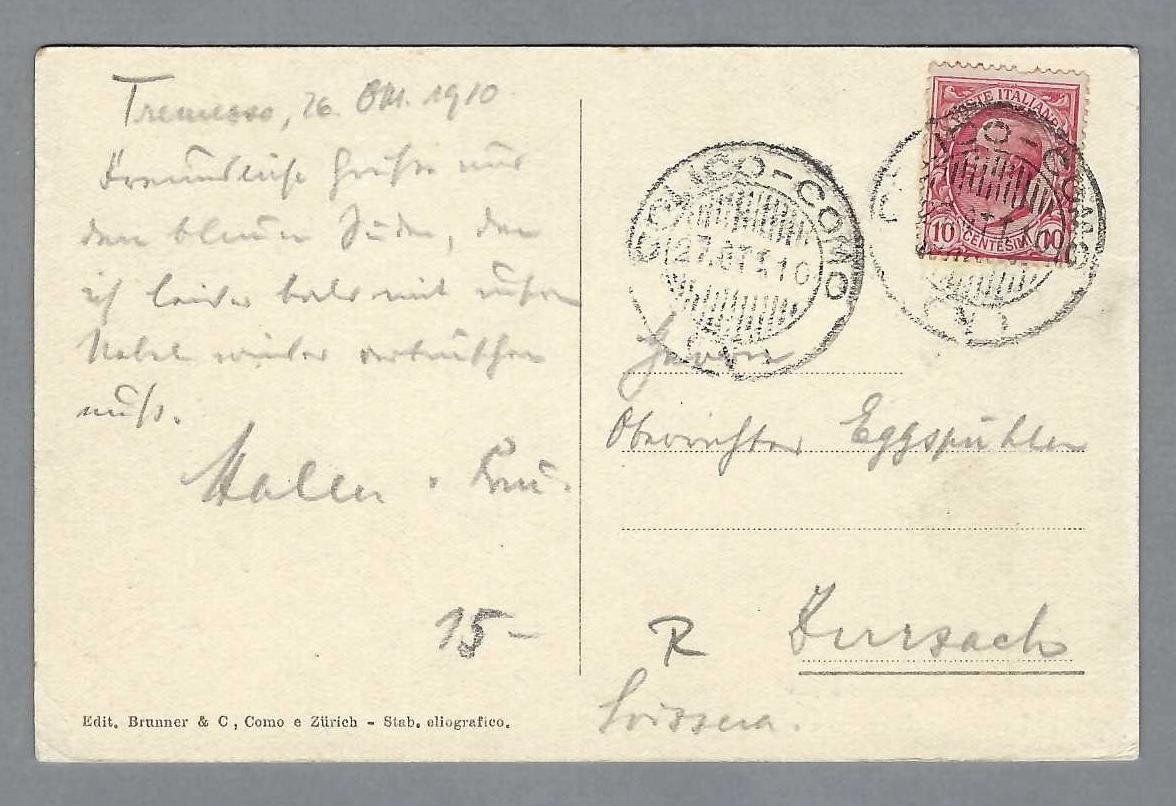 Tremezzo, 26. Okt. 1910
Freundliche Grüße aus
dem blauen Süden, den
ich leider bald mit unserm
Nebel wieder vertauschen
muß.
Haller
15-
Edit. Brunner & C, Como e Zürich - Stab. eliografico.
POSTE ITALIANE
10 CENTESIMI 10
COLICO-COMO
27.OTT.10
Herrn
Oberrichter Eggspühler
R Zurzach
Svizzera.